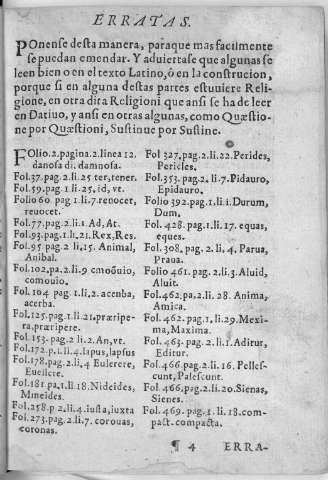 ERRATAS.
POnense desta manera, paraque mas facilmente
se puedan emendar. Y aduiertase que algunas se
leen bien o en el texto Latino, ó en la construcion,
porque si en alguna destas partes estuuiere Reli-
gione, en otra dira Religioni que ansi se ha de leer
en Datiuo, y ansi en otras algunas, como Quæstio-
ne por Quæstioni, Sustinue por Sustine.
FOlio.2.pagina.2.linea 12.
danosa di. damnosa.
Fol.37.pag.2.li.25 ter, tener.
Fol.59.pag.1 li.25, id, vt.
Folio 60. pag 1.li.7.renocet,
reuocet.
Fol.77.pag.2.li.1.Ad, At.
Fol.93.pag.1.li,21.Rex,Res.
Fol.95 pag.2 li,15. Animal,
Anibal.
Fol.102,pa.2.li.9 cmoũuio,
comouio.
Fol. 104 pag 1.li,2. acenba,
acerba.
Fol.125.pag.1.li.21,præripe-
ra,præripere.
Fol.153.pag.2 li.2.An,vt.
Fol.172.p.1.li.4.lapus,lapsus
Fol.178.pag.2,li.4 Eulerere,
Euellere.
Fol.181.pa,1.li.18.Nideides,
Mineides.
Fol.258.p 2.li.4.iusta,iuxta
Fol.273.pag.2.li.7. corouas,
coronas.
Fol 327.pag.2.li.22.Perides,
Pericles.
Fol.353. pag.2.li.7.Pidauro,
Epidauro.
Folio 392.pag.1.li:1.Durum,
Dum.
Fol.428. pag.1.li.17. equas,
eques.
Fol.308, pag.2. li, 4. Parua,
Praua.
Folio 461. pag.2.li.3.Aluid,
Aluit.
Fol.462.pa,2.li.28. Anima,
Amica.
Fol.462. pag.1, li.29.Mexi-
ma, Maxima.
Fol.463. pag.2.li.1.Adirur,
Editur.
Fol.466.pag.2.li.16. Pelles-
cunt, Palescunt.
Fol.466,pag.2.li.20.Sienas,
Sienes.
Fol.469.pag.1.li.18.com-
pact. compacta.
¶ 4 ERRA-